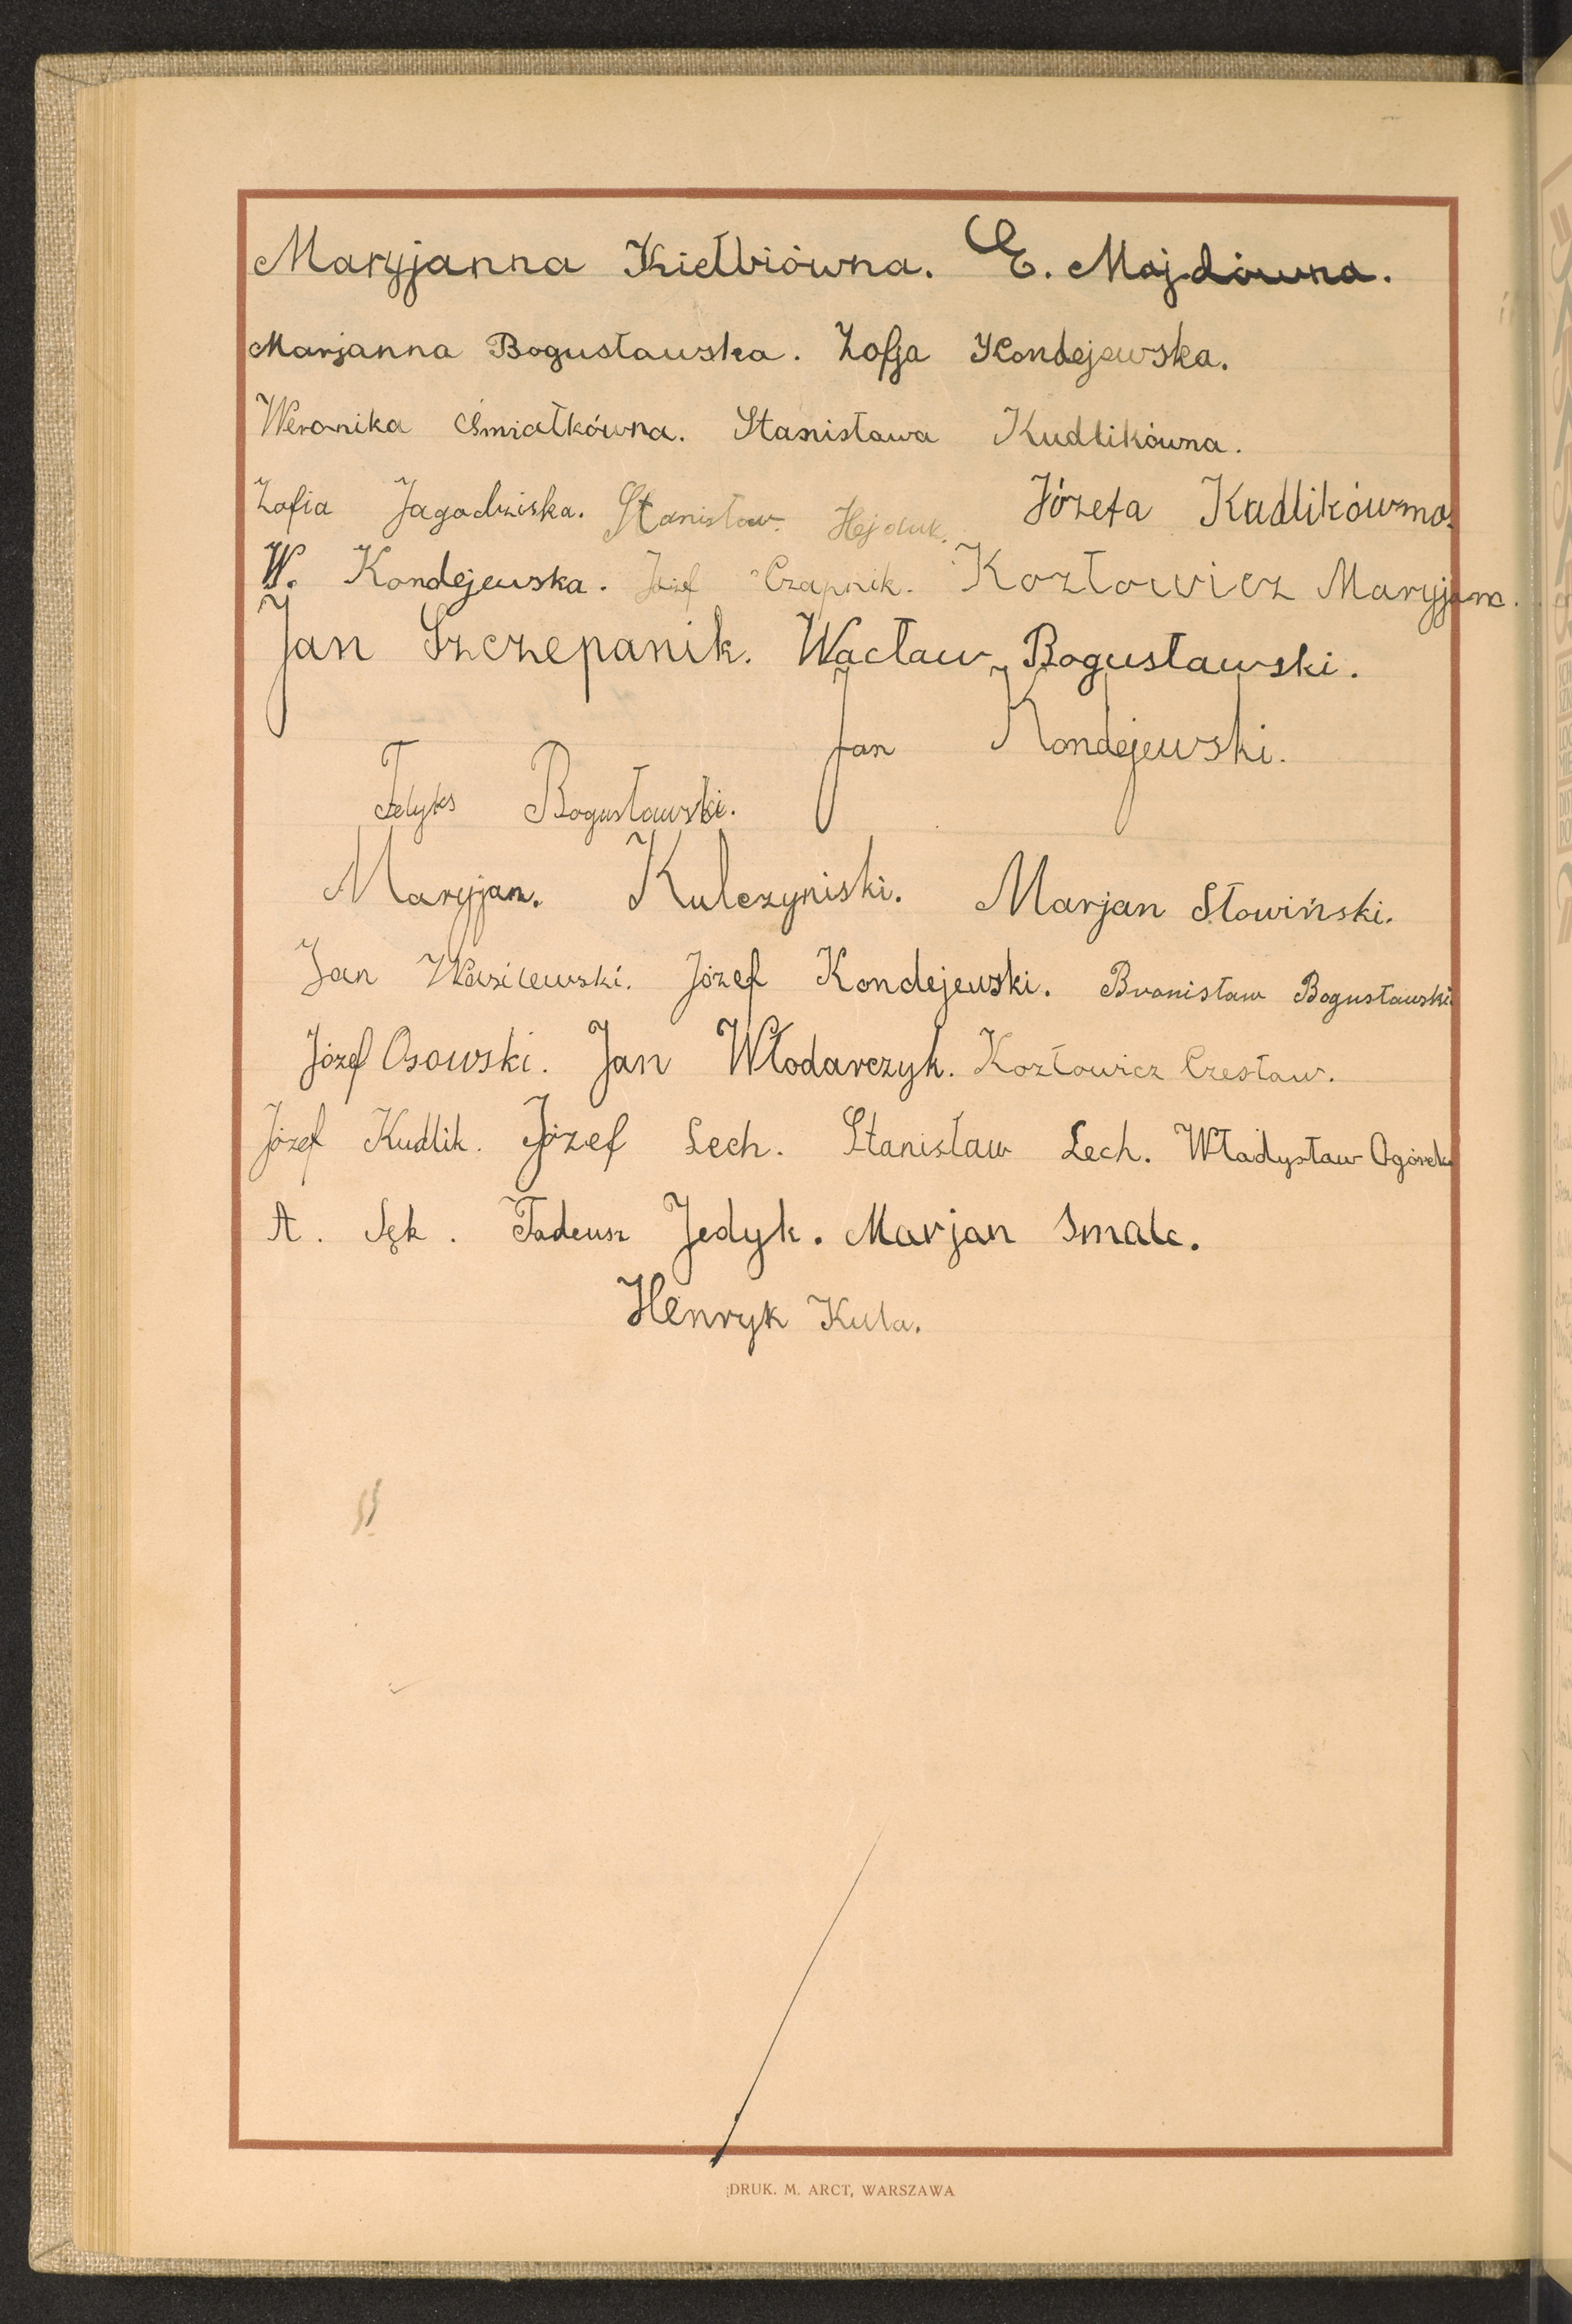 Maryjanna Kiełbiówna. E. Majdówna.
Marjanna Bogusławska. Zofja Kondejewska.
Weronika Śmiałkówna. Stanisława Kudlikówna.
Zofia Jagodziska. Stanisław Hejduk. Józefa Kudlikówna.
W. Kondejewska. Józef Czapnik. Kozłowicz Maryjana.
Jan Szczepanik. Wacław Bogusławski.
Jan Kondejewski.
Felyks Bogusławski.
Maryjan. Kulczyniski. Marjan Słowiński.
Jan Wasilewski. Józef Kondejewski. Bronisław Bogusławski
Józef Osowski. Jan Włodarczyk. Kozłowicz Czesław.
Józef Kudlik. Józef Lech. Stanisław Lech. Władysław Ogórek
A. Sęk. Tadeusz Jedyk. Marjan Smalc.
Henryk Kula.
DRUK. M. ARCT, WARSZAWA